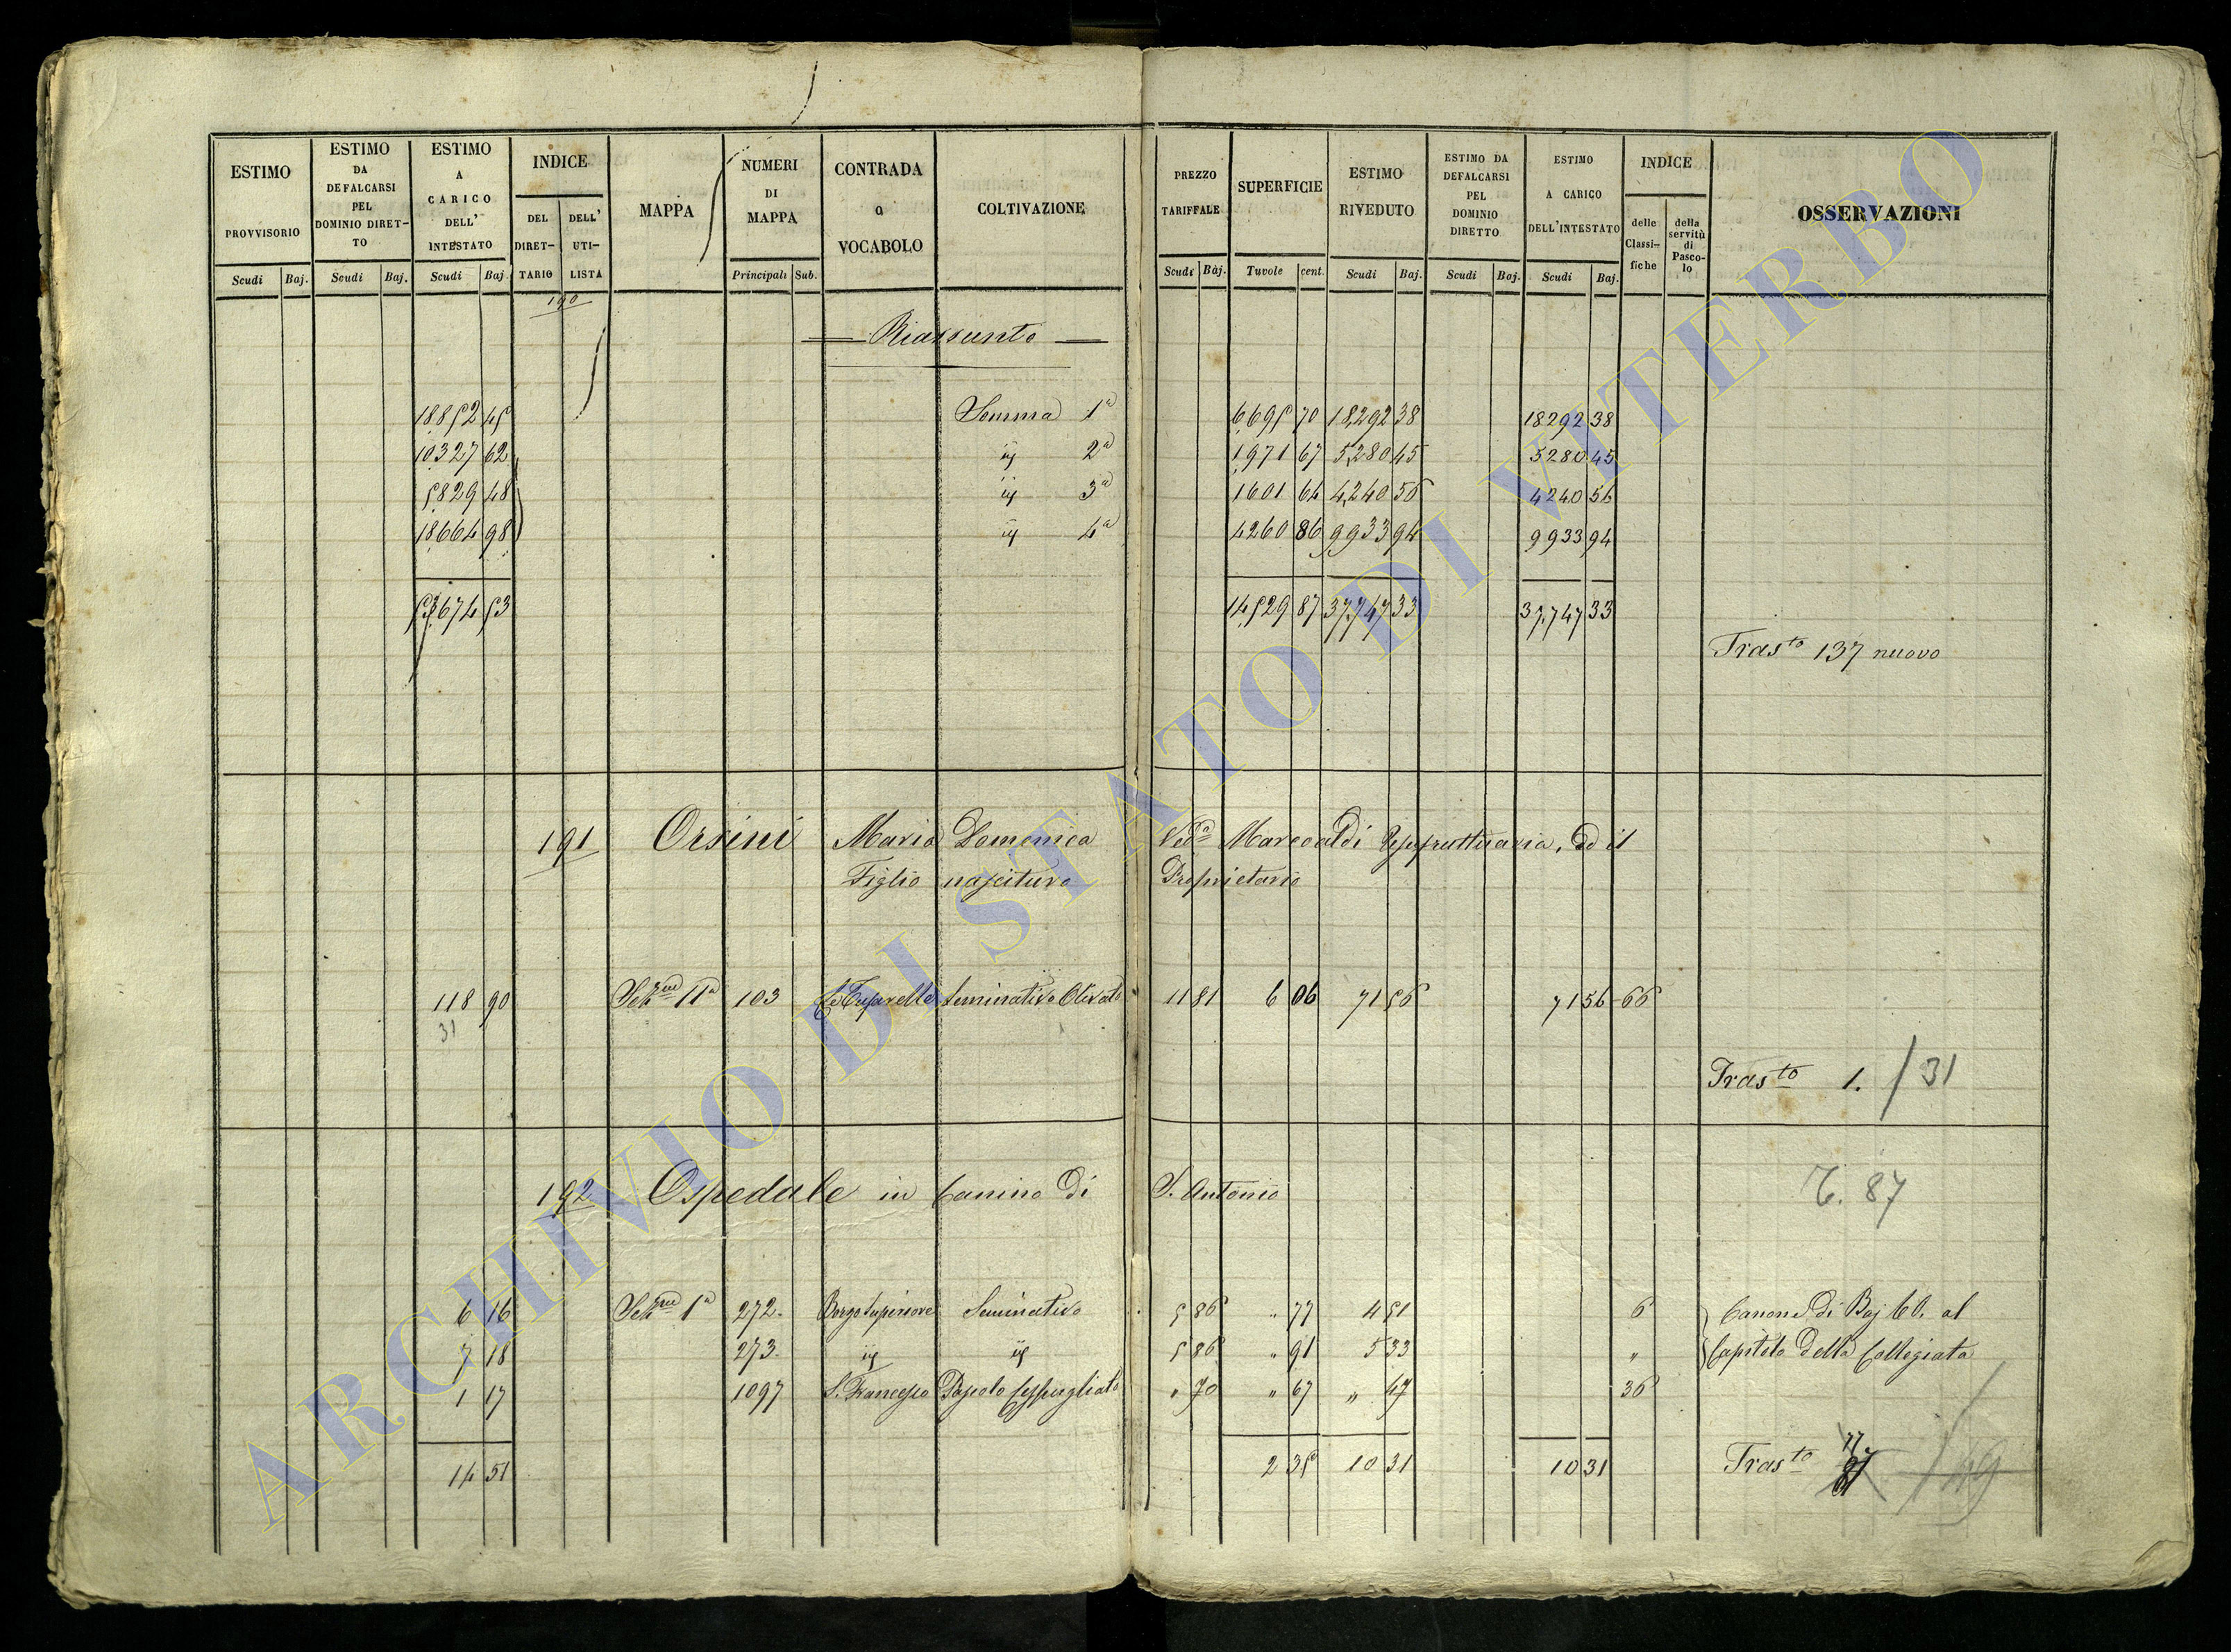 ESTIMO PROVVISORIO Scudi Baj.
ESTIMO DA DEFALCARSI PEL DOMINIO DIRETTO Scudi Baj.
ESTIMO A CARICO DELL' INTESTATO Scudi Baj.
INDICE DEL DIRETTARIO DELL' UTILISTA
MAPPA
NUMERI DI MAPPA Principali Sub.
CONTRADA o VOCABOLO
COLTIVAZIONE
PREZZO TARIFFALE Scudi Baj.
SUPERFICIE Tavole cent.
ESTIMO RIVEDUTO Scudi Baj.
ESTIMO DA DEFALCARSI PEL DOMINIO DIRETTO Scudi Baj.
ESTIMO A CARICO DELL'INTESTATO Scudi Baj.
INDICE delle Classifiche della servitù di Pascolo
OSSERVAZIONI
190
Riassunto
18852 45 Somma 1ª 6695 70 18,292 38 18292 38
10327 62 " 2ª 1971 67 5,280 45 5280 45
5829 48 " 3ª 1601 64 4,240 56 4240 56
18664 98 " 4ª 4260 86 9933 94 9933 94
53,674 53 14,529 87 37,747 33 37,747 33
Trasto 137 nuovo
191 Orsini Maria Domenica Veda Marcoaldi Usufruttuaria, ed il
Figlio nascituro Proprietario
118 90 Sezne 11ª 103 Seminativo Olivato 11 81 6 06 71 56 71 56 66
31
Trasto 1. / 31
192 Ospedale in Canino di S. Antonio
T. 87
6 16 Sezne 1ª 272. Borgo Superiore Seminativo 5 86 " 77 4 51 6 Canone di Baj 60. al
7 18 273. " " 5 86 " 91 5 33 " Capitolo della Collegiata
1 17 1097 S. Francesco Pascolo Cespugliato " 70 " 67 " 47 36
14 51 2 35 10 31 10 31 Trasto 77 / 49
ARCHIVIO DI STATO DI VITERBO